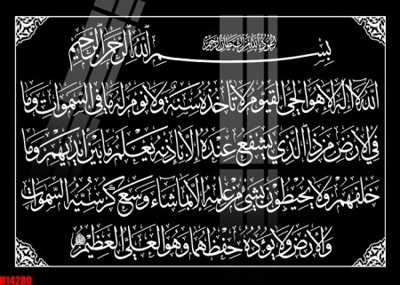 اعوذ بالله من الشيطان الرجيم
بسم الله الرحمن الرحيم
الله لا اله الا هو الحي القيوم لا تأخذه سنة ولا نوم له ما في السموات وما
في الارض من ذا الذي يشفع عنده الا باذنه يعلم ما بين ايديهم وما
خلفهم ولا يحيطون بشيء من علمه الا بما شاء وسع كرسيه السموات
والارض ولا يؤده حفظهما وهو العلي العظيم
N14280